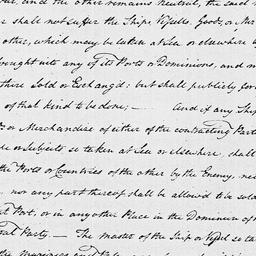 and the other remains neutral, the said n
r shall not suffer the Ships, Vessels, Goods, or Mer
other, which may be taken at Sea or elsewhere by
brought into any of its Ports or Dominions, and mu
there Sold or Exchang'd; but shall publickly forb
of that kind to be done; — And if any Ship
or Merchandize of either of the contracting Parti
le or Subjects so taken at Sea or elsewhere, shall
the Ports or Countries of the other by the Enemy, nei
nor any part thereof shall be allow'd to be sold
at Port, or in any other Place in the Dominion of
ral Party — The master of the Ship or Vessel so ta